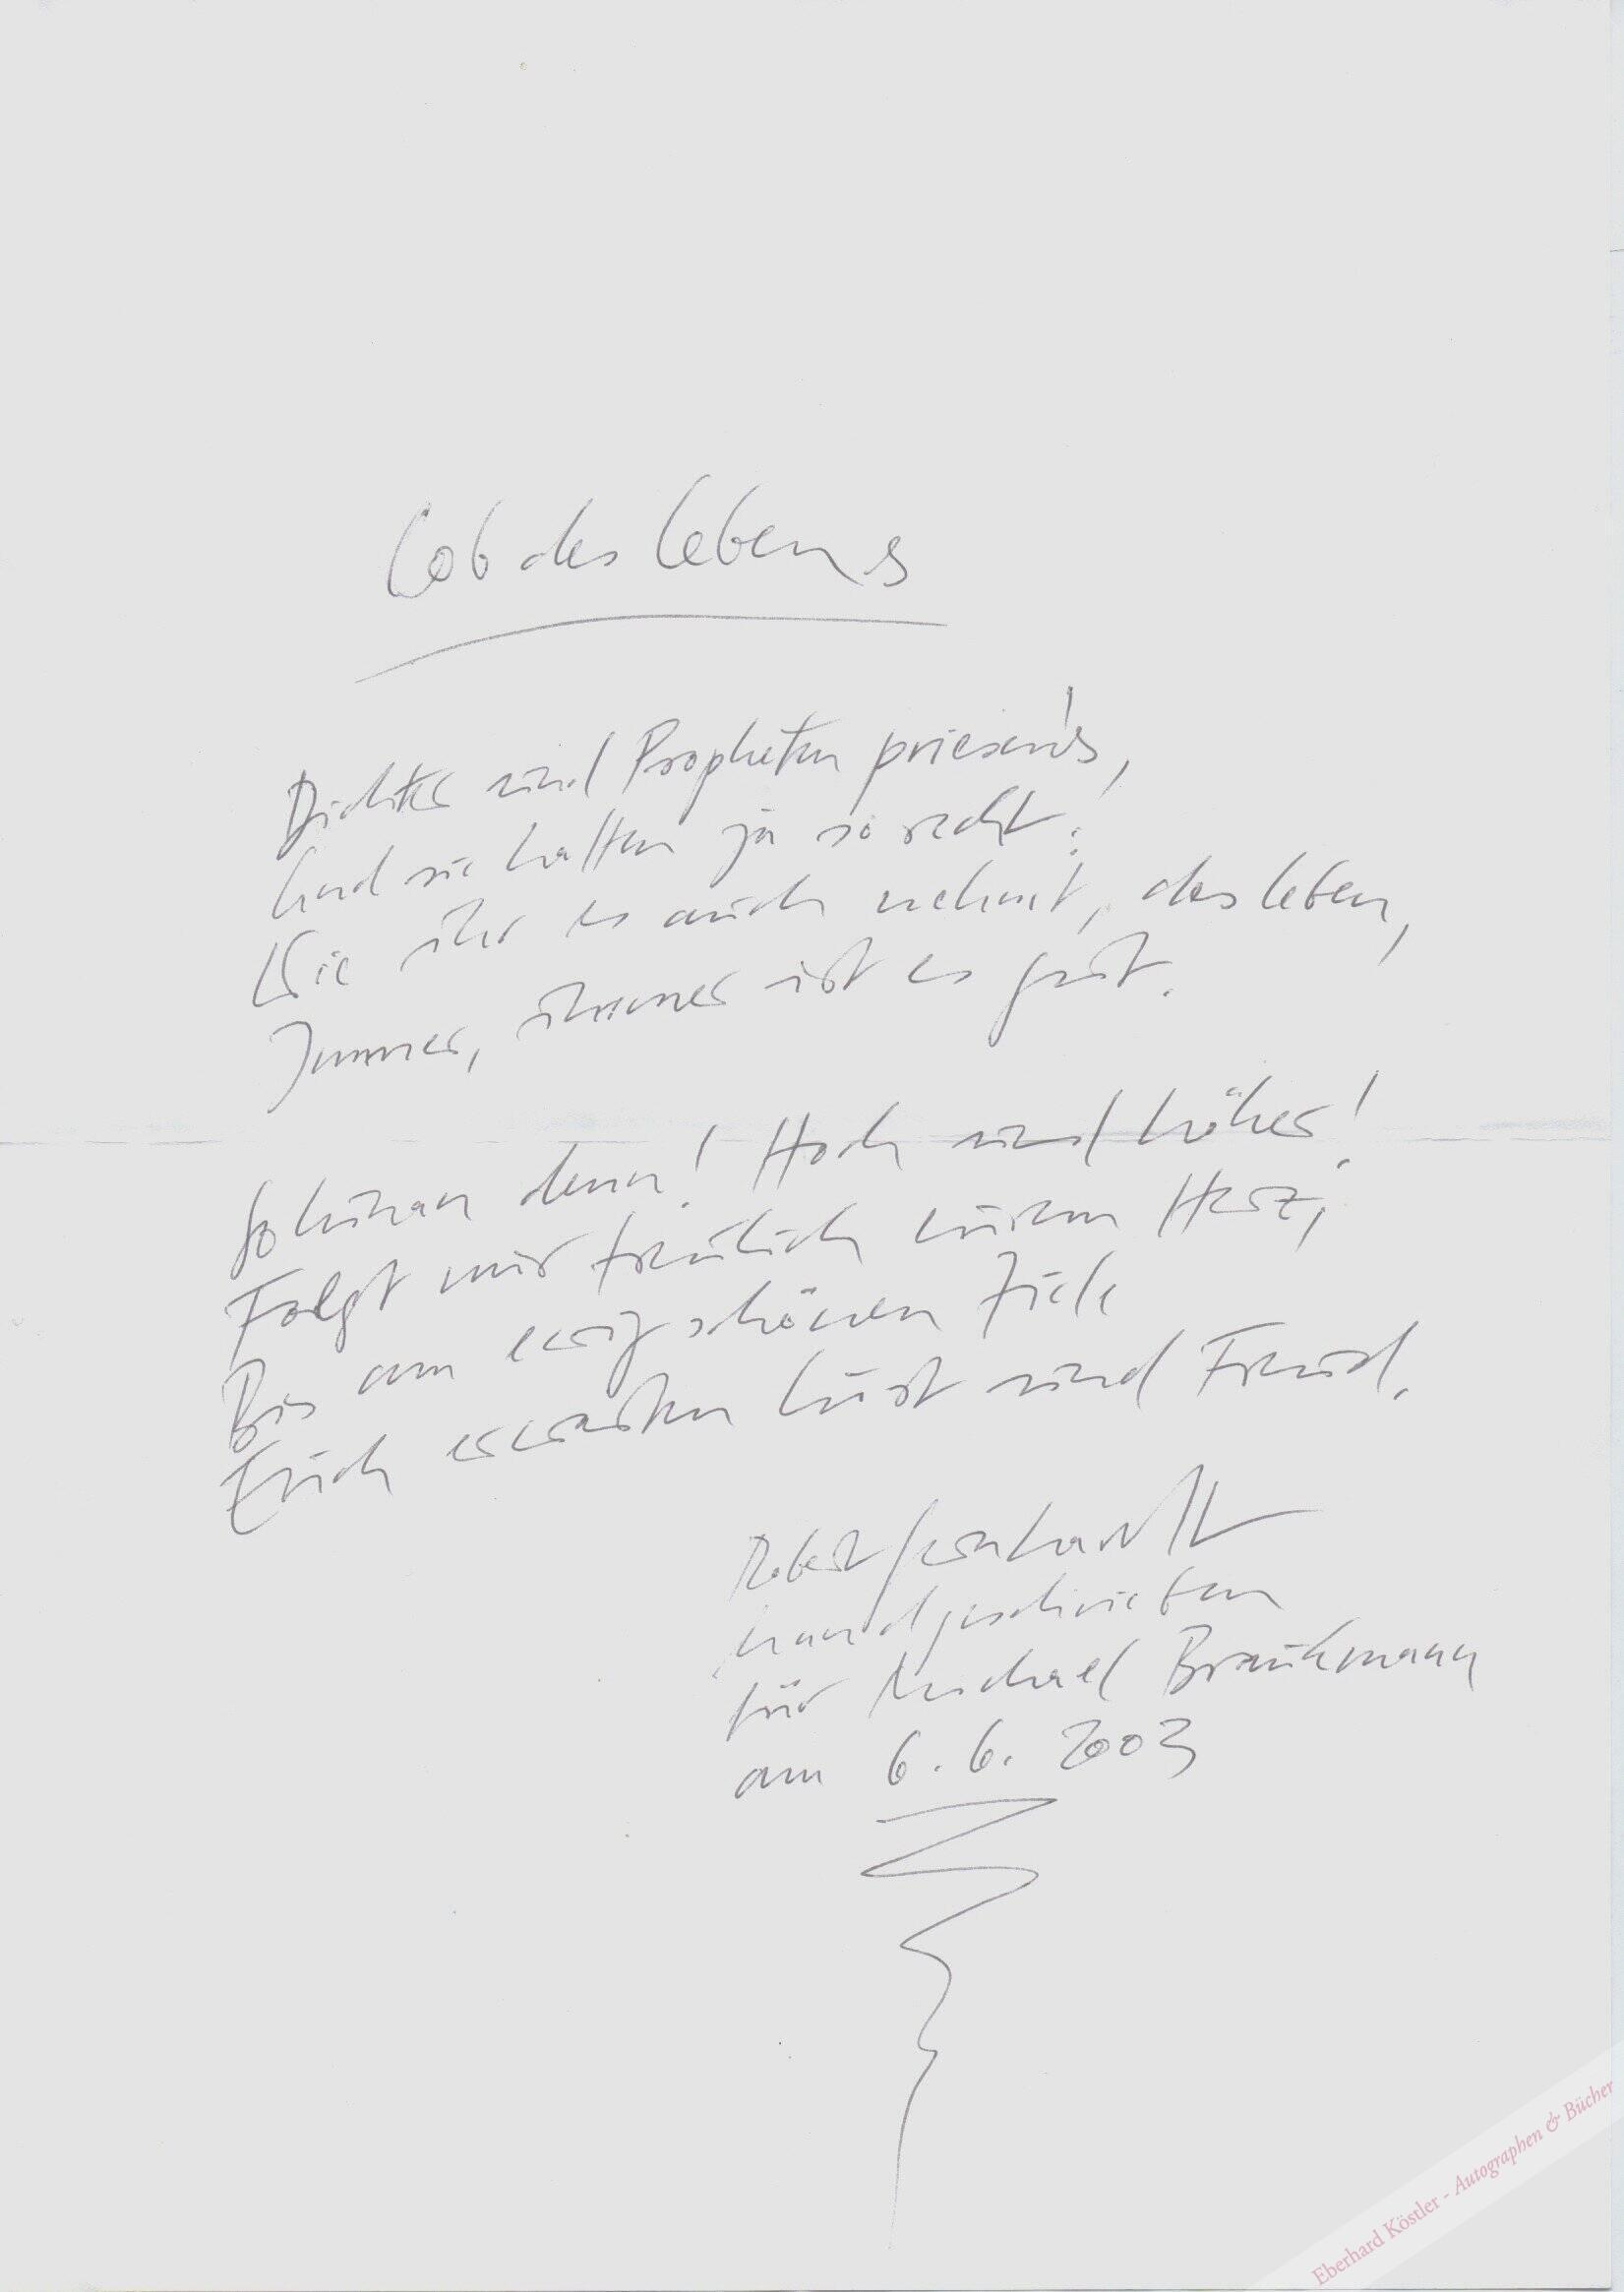 Lob des Lebens
Dichter und Propheten priesen's,
Und sie hatten ja so recht!
Wie ihr es auch nehmt, das Leben,
Immer, immer ist es gut.
So hinan denn! Hoch und höher!
Folgt nur freulich eurem Herz,
Bis am ewig schönen Ziele
Euch erwarten Lust und Freud.
Robert Gernhardt
handgeschrieben
für Michael Braukmann
am 6.6.2003
Eberhard Köstler - Autographen & Bücher